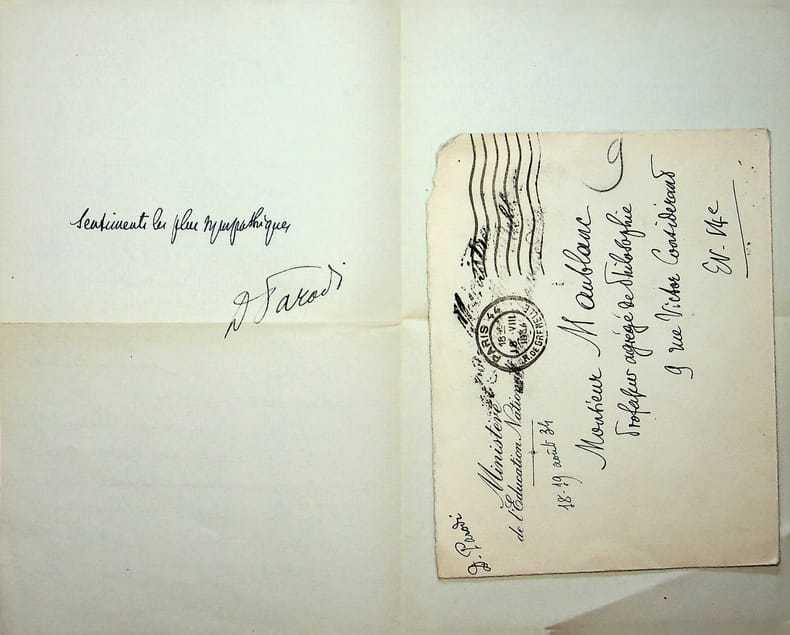 Sentiments les plus sympathiques
D Parodi
Monsieur Maublanc
Professeur agrégé de Philosophie
9 rue Victor Considerant
EV. 14e
PARIS 44
18 VIII
1934
R. DE GRENELLE
Ministère
de l'Education Nationale
18-19 août 34
D. Parodi